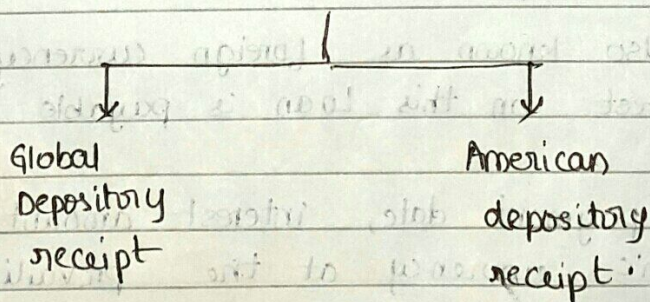 Global
Depository
receipt
American
depository
receipt.